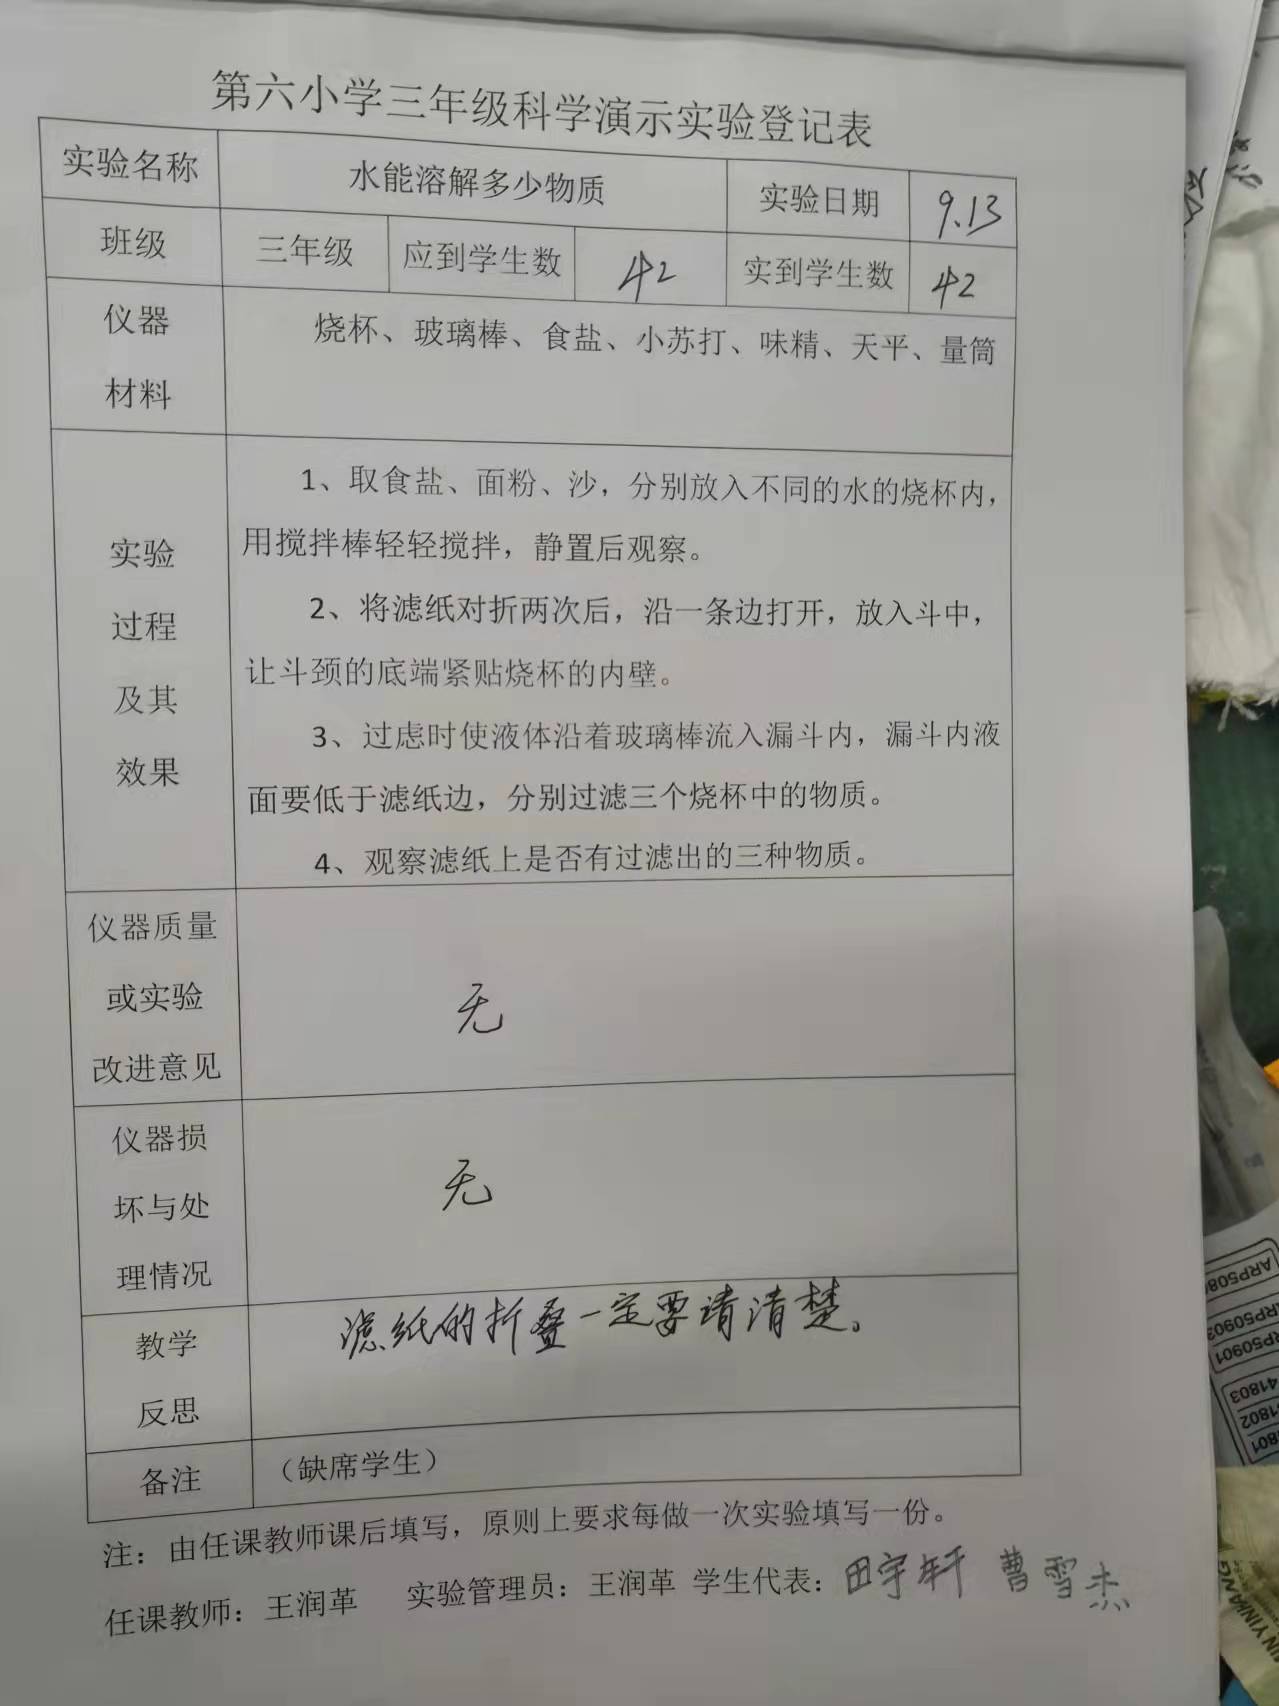 第六小学三年级科学演示实验登记表
实验名称 水能溶解多少物质 实验日期 9.13
班级 三年级 应到学生数 42 实到学生数 42
仪器
材料
烧杯、玻璃棒、食盐、小苏打、味精、天平、量筒
实验
过程
及其
效果
1、取食盐、面粉、沙，分别放入不同的水的烧杯内，
用搅拌棒轻轻搅拌，静置后观察。
2、将滤纸对折两次后，沿一条边打开，放入斗中，
让斗颈的底端紧贴烧杯的内壁。
3、过虑时使液体沿着玻璃棒流入漏斗内，漏斗内液
面要低于滤纸边，分别过滤三个烧杯中的物质。
4、观察滤纸上是否有过滤出的三种物质。
仪器质量
或实验
改进意见
无
仪器损
坏与处
理情况
无
教学
反思
滤纸的折叠一定要请清楚。
备注 （缺席学生）
注：由任课教师课后填写，原则上要求每做一次实验填写一份。
任课教师：王润革 实验管理员：王润革 学生代表：田宇轩 曹雪杰
ARP508
ARP50903
RP50901
41803
41802
1801